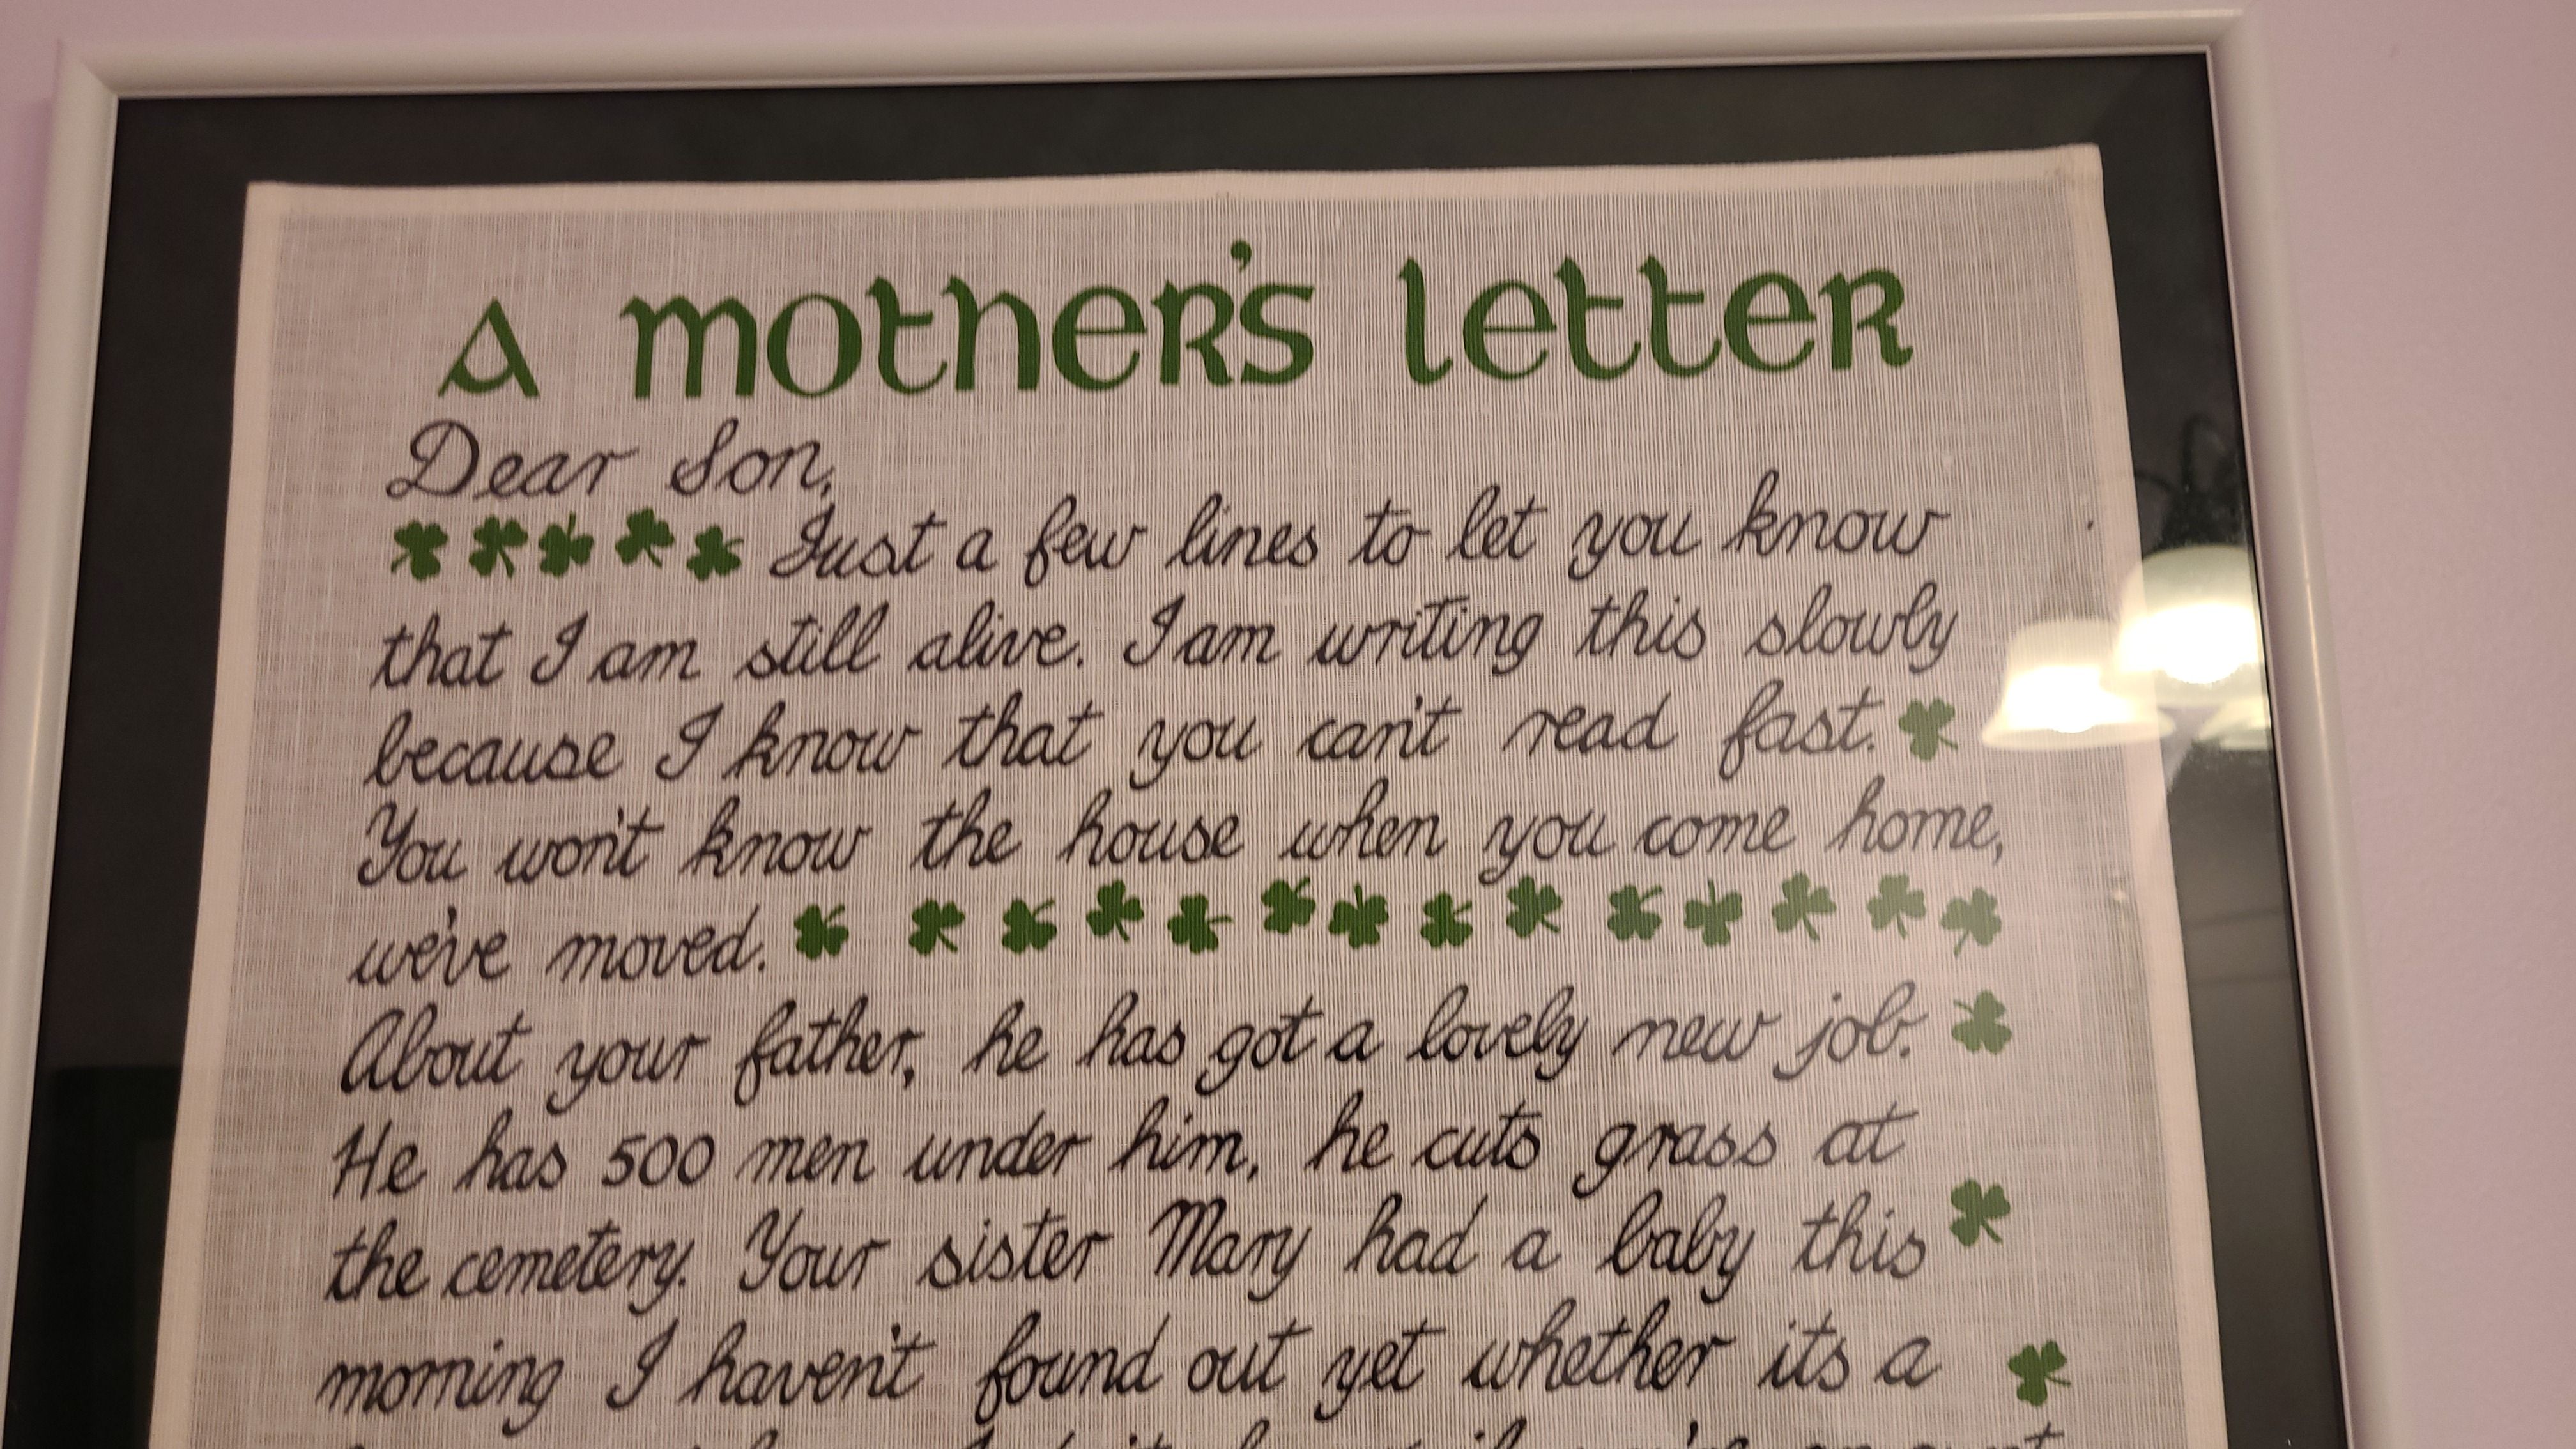 A mother's letter
Dear Son,
Just a few lines to let you know
that I am still alive. I am writing this slowly
because I know that you can't read fast.
You won't know the house when you come home,
we've moved.
About your father, he has got a lovely new job.
He has 500 men under him, he cuts grass at
the cemetery. Your sister Mary had a baby this
morning I haven't found out yet whether its a